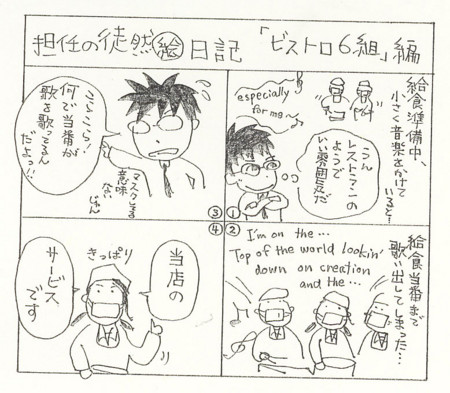 担任の徒然絵日記 「ビストロ6組」編
給食準備中、
小さく音楽をかけて
いると…
especially
for me~
うん
レストランの
ようで
いい雰囲気だ
①
給食当番まで
歌い出してしまった…
I'm on the…
Top of the world lookin'
down on creation
and the…
②
こらこら!
何で当番が
歌を歌ってるん
だよっ!!
マスクしてる
意味
ない
じゃん
③
きっぱり
当店の
サービス
です
④